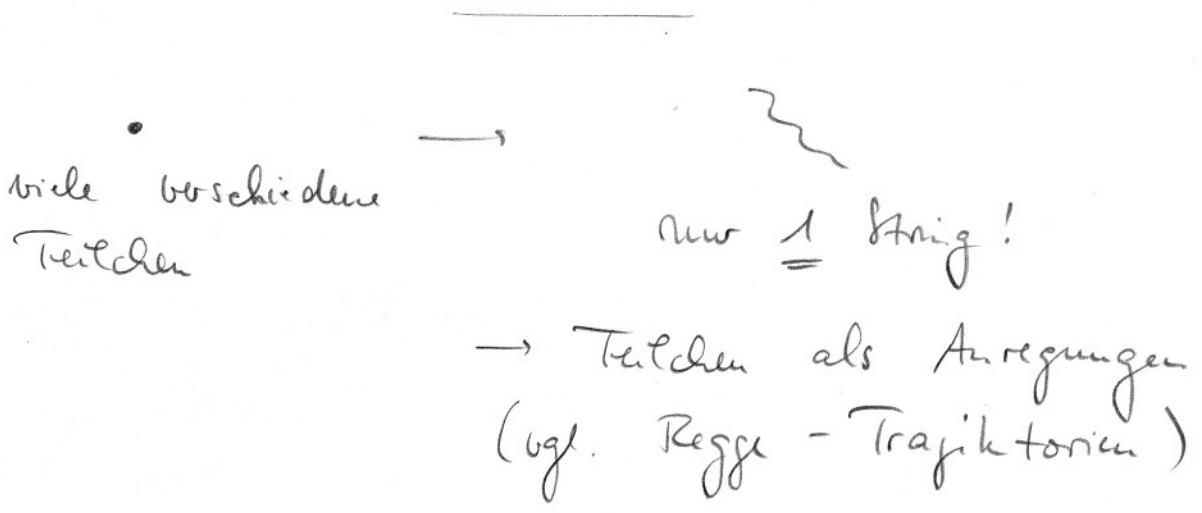 viele verschiedene
Teilchen
→
nur 1 String!
→ Teilchen als Anregungen
(vgl. Regge - Trajektorien)